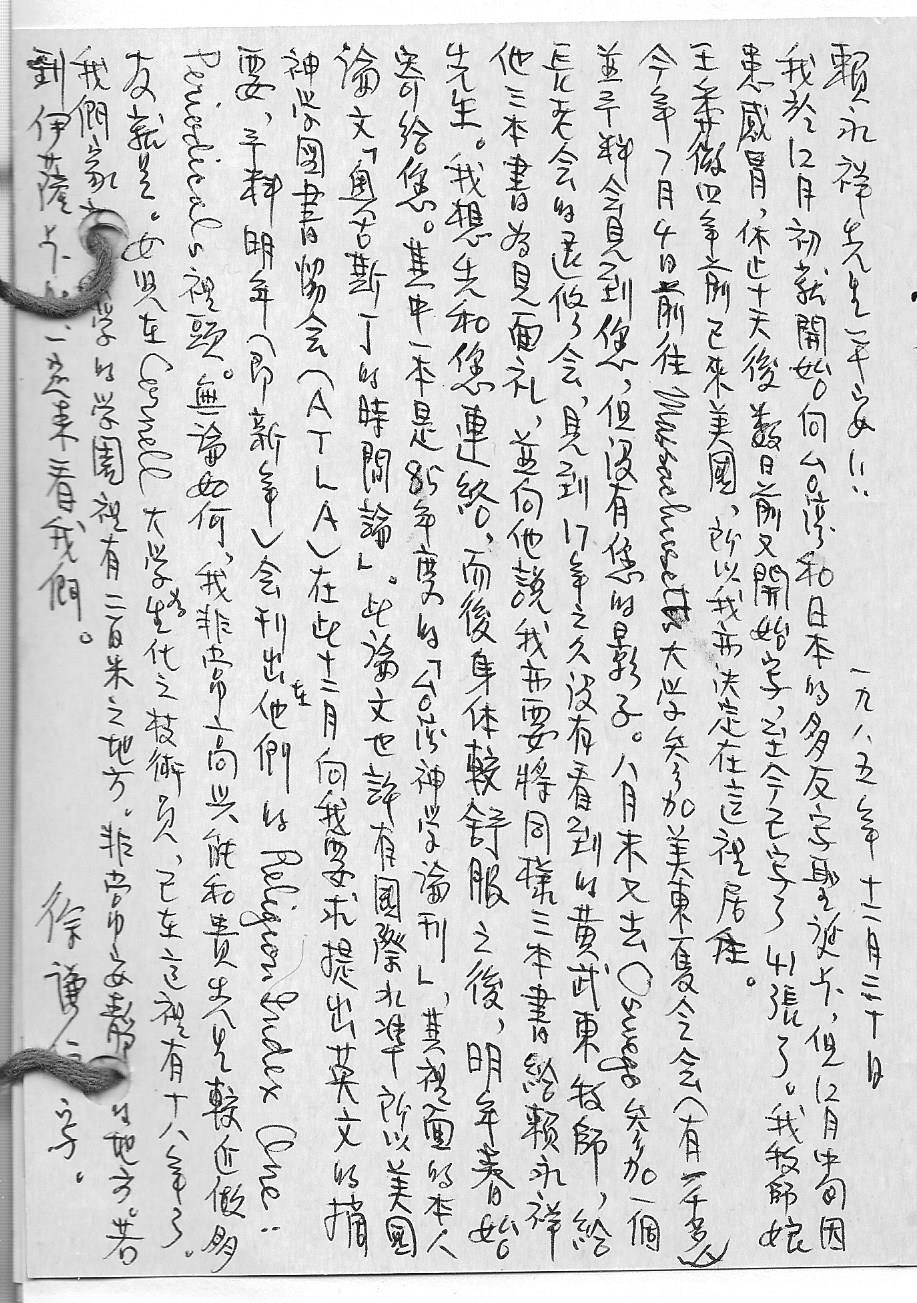 一九八五年十二月三十日
賴永祥先生平安!!:
我於12月初就開始向台湾和日本的多友寄聖诞卡,但12月中旬因
患感冒,休止十天後数日前又開始寄,至今已寄了41張了。我牧師娘
王柔微四年前已來美國,所以我亦决定在這裡居住。
今年7月4日前往Massachusetts大学参加美東夏令会(有一千
並予料会見到您,但没有您的影子。八月末又去Oswego参加一個
長老会的退修会,見到17年之久没有看到的黃武東牧師,給
他三本書為見面礼,並向他説我亦要將同樣三本書給賴永祥
先生。我想先和您連絡,而後身体較舒服之後,明年春始
寄給您。其中一本是85年度的「台湾神学論刊」,其裡面的本人
論文「奥古斯丁的時間論」。此論文也許有國際水準所以美國
神学圖書協会(ATLA)在此十二月向我要求提出英文的摘
要,予料明年(即新年)会刊出在他們的Religion Index One:
Periodicals裡頭。無論如何,我非常高兴能和貴先生較近做多
友就是。女兒在Cornell大学為生化之技術员,已在這裡有十八年了。
我們家 学的学園裡有二百米之地方。非常安静的地方。若
到伊薩卡 一定來看我們。
徐謙 寄。